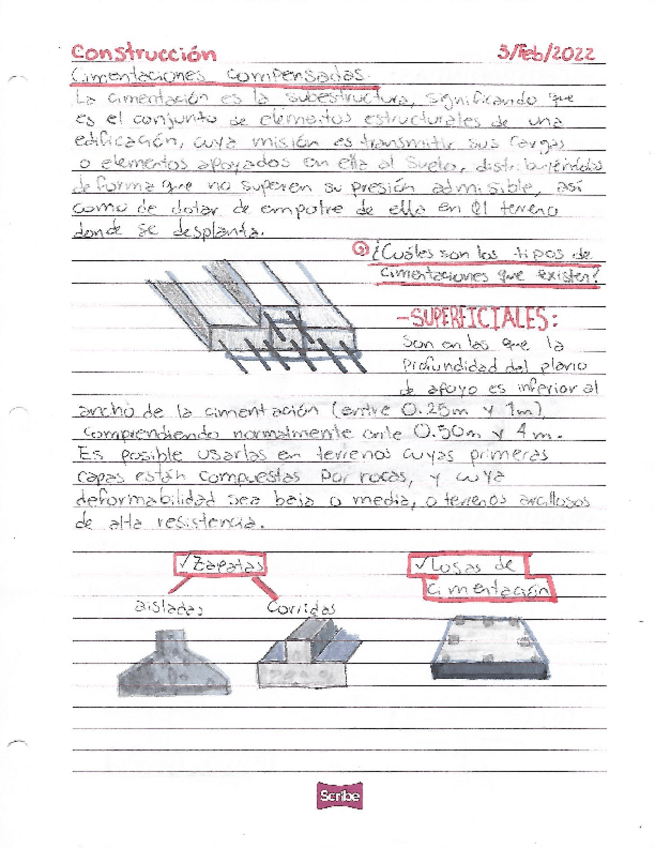 Construcción 3/Feb/2022
Cimentaciones compensadas.
La cimentación es la subestructura, significando que
es el conjunto de elementos estructurales de una
edificación, cuya misión es transmitir sus cargas
o elementos apoyados en ella al suelo, distribuyéndolas
de forma que no superen su presión admisible, así
como de dotar de empotre de ella en el terreno
donde se desplanta.
¿Cuáles son los tipos de
cimentaciones que existen?
-SUPERFICIALES:
Son en las que la
profundidad del plano
de apoyo es inferior al
ancho de la cimentación (entre 0.25m y 1m),
comprendiendo normalmente ente 0.50m y 4m.
Es posible usarlas en terrenos cuyas primeras
capas están compuestas por rocas, y cuya
deformabilidad sea baja o media, o terrenos arcillosos
de alta resistencia.
✓Zapatas ✓Losas de
cimentación
aisladas corridas
Scribe